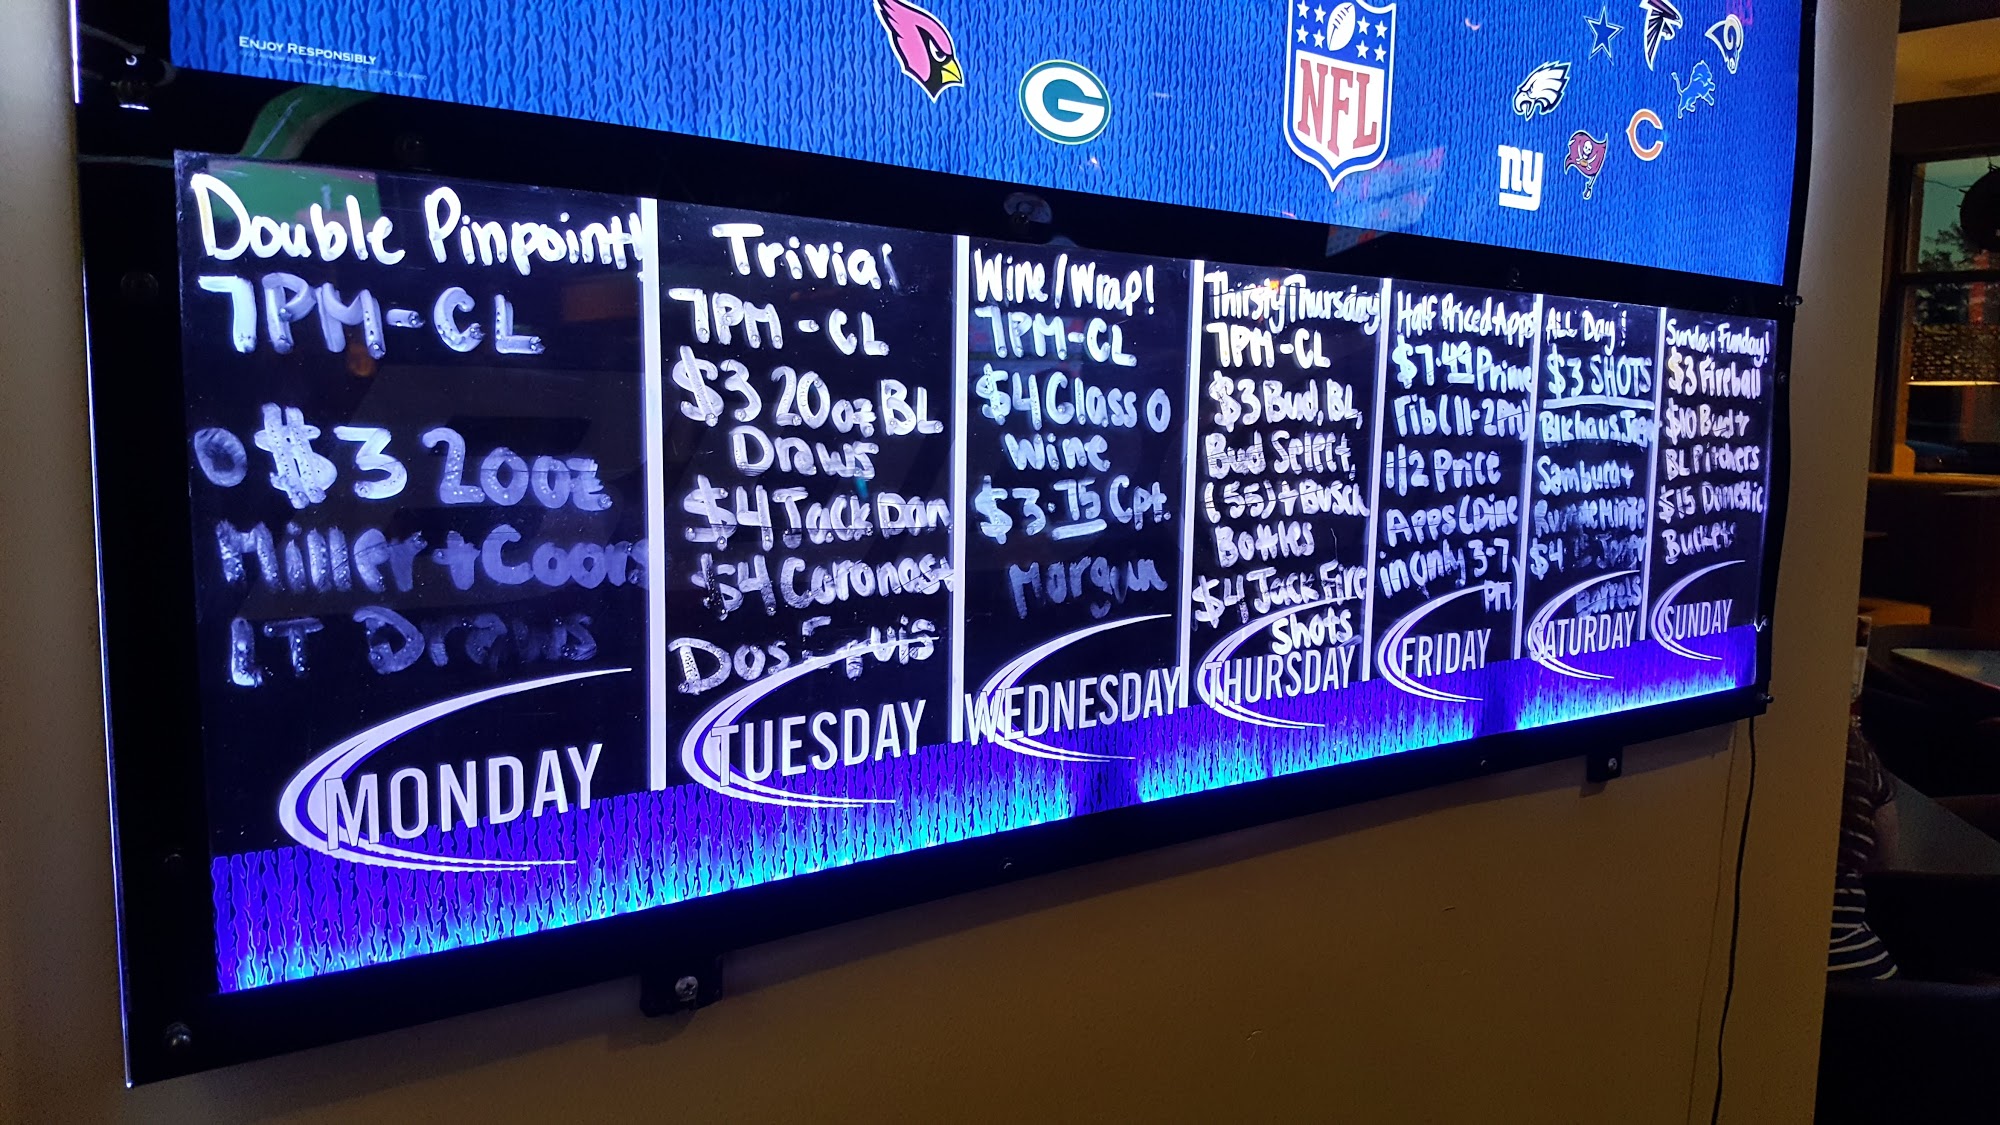 ENJOY RESPONSIBLY
NFL
G
ny
C
Double Pinpoint!
7PM-CL
$3 20oz
Miller + Coors
LT Draws
MONDAY
Trivia!
7PM-CL
$3 20oz BL
Draws
$4 Jack Dan
$4 Coronas +
Dos Equis
TUESDAY
Wine/Wrap!
7PM-CL
$4 Glass O
Wine
$3.75 Cpt.
Morgan
WEDNESDAY
Thirsty Thursday
7PM-CL
$3 Bud, BL,
Bud Select,
(55) + Busch
Bottles
$4 Jack Fire
Shots
THURSDAY
Half Priced Apps
$7.49 Prime
rib (11-2PM)
1/2 Price
Apps (Dine
in only 3-7
PM)
FRIDAY
ALL Day!
$3 SHOTS
Blkhaus, Jager
Sambuca +
Rumpleminze
$4
Barrels
SATURDAY
Sunday Funday!
$3 Fireball
$10 Bud +
BL Pitchers
$15 Domestic
Buckets
SUNDAY